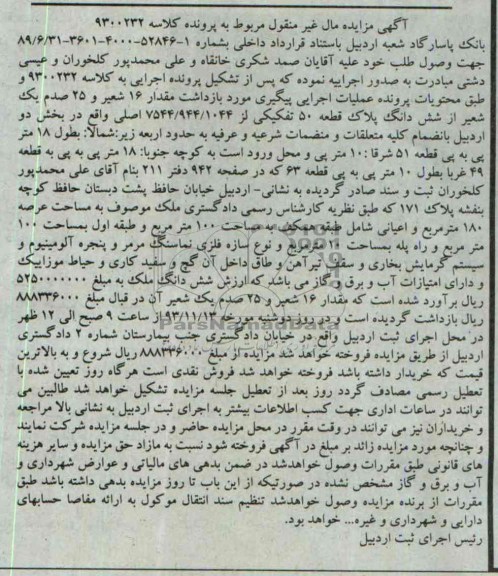 آگهی مزایده مال غیر منقول مربوط به پرونده کلاسه ۹۳۰۰۲۳۲
بانک پاسارگاد شعبه اردبیل باستناد قرارداد داخلی بشماره ۱-۵۲۸۴۶-۴۰۰۰-۳۶۰۱-۸۹/۶/۳۱
جهت وصول طلب خود علیه آقایان صمد شکری خانقاه و علی محمدپور کلخوران و عیسی
دشتی مبادرت به صدور اجراییه نموده که پس از تشکیل پرونده اجرایی به کلاسه ۹۳۰۰۲۳۲ و
طبق محتویات پرونده عملیات اجرایی پیگیری مورد بازداشت مقدار ۱۶ شعیر و ۲۵ صدم یک
شعیر از شش دانگ پلاک قطعه ۵۰ تفکیکی لز ۷۵۴۴/۹۴۴/۱۰۴۴ اصلی واقع در بخش دو
اردبیل بانضمام کلیه متعلقات و منضمات شرعیه و عرفیه به حدود اربعه زیر:شمالا: بطول ۱۸ متر
پی به پی قطعه ۵۱ شرقا :۱۰ متر پی و محل ورود است به کوچه جنوبا: ۱۸ متر پی به پی به قطعه
۴۹ غربا بطول ۱۰ متر پی به پی قطعه ۶۳ که در صفحه ۹۴۲ دفتر ۲۱۱ بنام آقای علی محمدپور
کلخوران ثبت و سند صادر گردیده به نشانی- اردبیل خیابان حافظ پشت دبستان حافظ کوچه
بنفشه پلاک ۱۷۱ که طبق نظریه کارشناس رسمی دادگستری ملک موصوف به مساحت عرصه
۱۸۰ مترمربع و اعیانی شامل طبقه همکف به مساحت ۱۰۰ متر مربع و طبقه اول بمساحت ۱۰۰
متر مربع و راه پله بمساحت ۲۰ مترمربع و نوع سازه فلزی نماسنگ مرمر و پنجره آلومینیوم و
سیستم گرمایش بخاری و سقف تیرآهن و طاق داخل آن گچ و سفید کاری و حیاط موزاییک
و دارای امتیازات آب و برق و گاز می باشد که ارزش شش دانگ ملک به مبلغ ۵۲۵۰۰۰۰۰۰۰
ریال برآورد شده است که مقدار ۱۶ شعیر و ۲۵ صدم یک شعیر آن در قبال مبلغ ۸۸۸۳۳۶۰۰۰
ریال بازداشت گردیده است و در روز دوشنبه مورخه ۹۳/۱۱/۱۳ از ساعت ۹ صبح الی ۱۲ ظهر
در محل اجرای ثبت اردبیل واقع در خیابان دادگستری جنب بیمارستان شماره ۲ دادگستری
اردبیل از طریق مزایده فروخته خواهد شد مزایده از مبلغ ۸۸۸۳۳۶۰۰۰ ریال شروع و به بالاترین
قیمت که خریدار داشته باشد فروخته خواهد شد فروش نقدی است هرگاه روز تعیین شده با
تعطیل رسمی مصادف گردد روز بعد از تعطیل جلسه مزایده تشکیل خواهد شد طالبین می
توانند در ساعات اداری جهت کسب اطلاعات بیشتر به اجرای ثبت اردبیل به نشانی بالا مراجعه
و خریداران نیز می توانند در وقت مقرر در محل مزایده حاضر و در جلسه مزایده شرکت نمایند
و چنانچه مورد مزایده زائد بر مبلغ در آگهی فروخته شود نسبت به مازاد حق مزایده و سایر هزینه
های قانونی طبق مقررات وصول خواهدشد در ضمن بدهی های مالیاتی و عوارض شهرداری و
آب و برق و گاز مشخص نشده در صورتیکه از این باب تا روز مزایده بدهی داشته باشد طبق
مقررات از برنده مزایده وصول خواهدشد تنظیم سند انتقال موکول به ارائه مفاصا حسابهای
دارایی و شهرداری و غیره... خواهد بود.
رئیس اجرای ثبت اردبیل
ParsNamadData